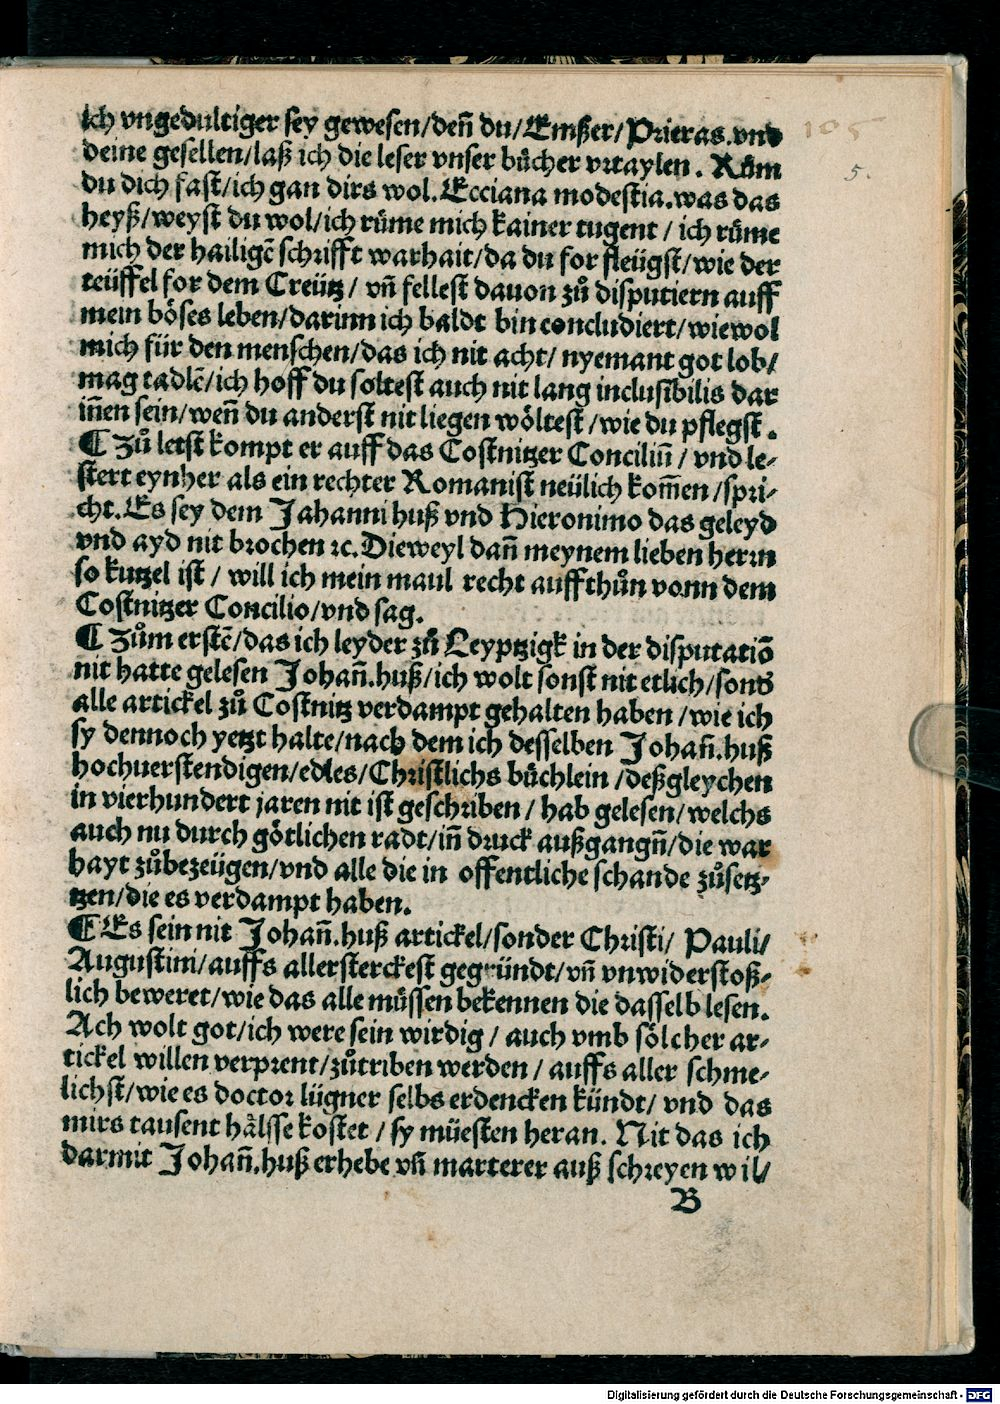 ich vngedultiger sey gewesen/deñ du/Emßer/Prieras.vnd
deine gesellen/laß ich die leser vnser bücher vrtaylen. Rům
du dich fast/ich gan dirs wol.Ecciana modestia.was das
heyß/weyst du wol/ich růme mich kainer tugent / ich růme
mich der hailigē schrifft warhait/da du for fleügst/wie der
teüffel for dem Creütz/ vñ fellest dauon zů disputiern auff
mein böses leben/darinn ich baldt bin concludiert/wiewol
mich für den menschen/das ich nit acht/ nyemant got lob/
mag tadlē/ich hoff du soltest auch nit lang inclusibilis dar
iñen sein/weñ du anderst nit liegen wöltest/wie du pflegst.
¶ Zů letst kompt er auff das Costnitzer Conciliū/ vnd le⸗
stert eynher als ein rechter Romanist neülich kom̃en/spri⸗
cht.Es sey dem Jahanni huß vnd Hieronimo das geleyd
vnd ayd nit brochen ꝛc.Dieweyl dañ meynem lieben herrn
so kutzel ist/ will ich mein maul recht auffthůn vonn dem
Costnitzer Concilio/vnd sag.
¶ Zům erstē/das ich leyder zů Leyptzigk in der disputatiō
nit hatte gelesen Johañ.huß/ich wolt sonst nit etlich/sonds
alle artickel zů Costnitz verdampt gehalten haben/wie ich
sy dennoch yetzt halte/nach dem ich desselben Johañ.huß
hochuerstendigen/edles/Christlichs büchlein/deßgleychen
in vierhundert jaren nit ist geschriben/ hab gelesen/welchs
auch nu durch götlichen radt/iñ druck außgangñ/die war
hayt zůbezeügen/vnd alle die in offentliche schande zůsetz⸗
tzen/die es verdampt haben.
¶ Es sein nit Johañ.huß artickel/sonder Christi/ Pauli/
Augustini/auffs allersterckest gegründt/vñ vnwiderstoß⸗
lich beweret/wie das alle müssen bekennen die dasselb lesen.
Ach wolt got/ich were sein wirdig/ auch vmb sölcher ar⸗
tickel willen verprent/zůtriben werden/ auffs aller schme⸗
lichst/wie es doctor lügner selbs erdencken kündt/ vnd das
mirs tausent hålsse kostet/ sy müesten heran. Nit das ich
darmit Johañ.huß erhebe vñ marterer auß schreyen wil/
B
105
5.
Digitalisierung gefördert durch die Deutsche Forschungsgemeinschaft - DFG